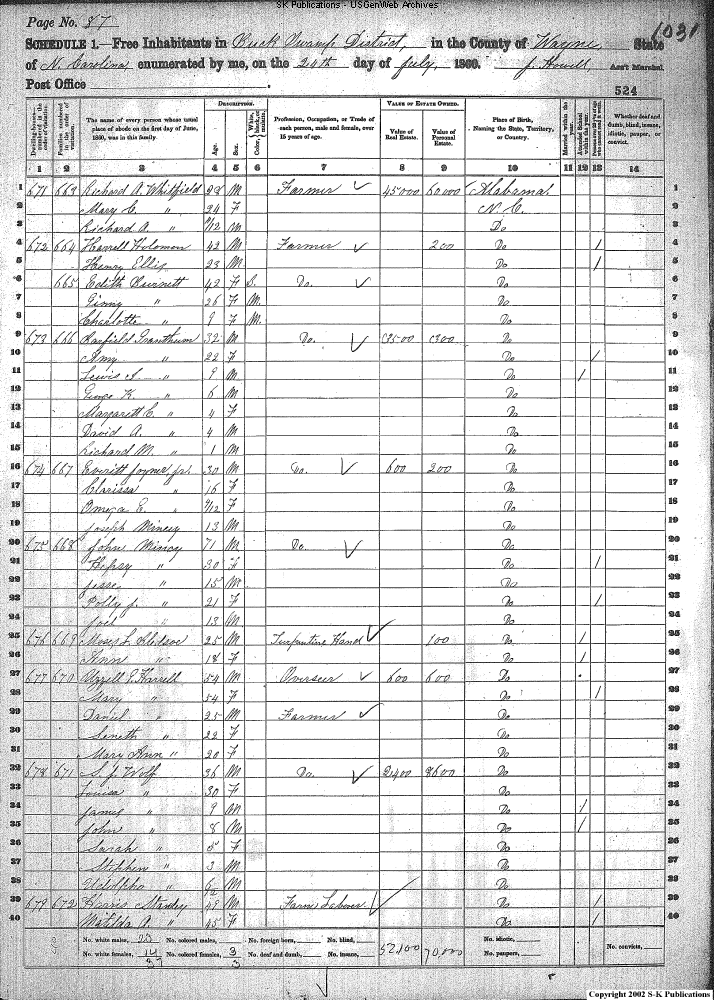 SK Publications - USGenWeb Archives
Page No. 87
1031
SCHEDULE 1.—Free Inhabitants in Buck Swamp District, in the County of Wayne State
of N. Carolina enumerated by me, on the 24th day of July, 1860. J. Howell, Ass't Marshal.
Post Office
524
Dwelling-houses—numbered in the order of visitation.
Families numbered in the order of visitation.
The name of every person whose usual place of abode on the first day of June, 1860, was in this family.
DESCRIPTION.
Age.
Sex.
Color, White, black, or mulatto.
Profession, Occupation, or Trade of each person, male and female, over 15 years of age.
VALUE OF ESTATE OWNED.
Value of Real Estate.
Value of Personal Estate.
Place of Birth, Naming the State, Territory, or Country.
Married within the year.
Attended School within the year.
Whether deaf and dumb, blind, insane, idiotic, pauper, or convict.
1 2 3 4 5 6 7 8 9 10 11 12 13 14
1 671 663 Richard A. Whitfield 28 M Farmer 45000 60000 Alabama 1
2 Mary C. " 24 F N. C. 2
3 Richard A. " 9/12 M Do 3
4 672 664 Harrell Holomon 42 M Farmer 200 Do / 4
5 Henry Ellis 23 M Do / 5
6 665 Edith Burnett 42 F B. Do. Do 6
7 Ginny " 26 F M. Do 7
8 Charlotte " 9 F M. Do 8
9 673 666 Grantham 32 M Do. 3500 Do 9
10 Amy " 22 F Do / 10
11 Lewis " 9 M Do / 11
12 George K. " 6 M Do 12
13 Margarett C. " 4 F Do 13
14 David A. " 4 M Do 14
15 Richard M. " 1 M Do 15
16 674 667 Everitt Joyner jr. 30 M Do. 600 200 Do 16
17 Clarissa " 16 F Do 17
18 Omega E. " 9/12 F Do 18
19 Joseph Mincey 13 M Do 19
20 675 668 John Mincey 71 M Do. Do 20
21 Hepsy " 30 F Do / 21
22 Jesse " 15 M Do 22
23 Polly J. " 21 F Do / 23
24 Joel " 13 M Do 24
25 676 669 Moses L. Bledsoe 25 M Turpentine Hand 100 Do / 25
26 Ann " 18 F Do / 26
27 677 670 Uzzell P. Harrell 54 M Overseer 600 600 Do 27
28 Mary " 54 F Do / 28
29 Daniel " 25 M Farmer Do 29
30 " 22 F Do 30
31 Mary Ann " 20 F Do 31
32 678 671 S. J. Wolf 36 M Do. 2400 8600 Do 32
33 Louisa " 30 F Do 33
34 James " 9 M Do / 34
35 John " 8 M Do / 35
36 Sarah " 5 F Do 36
37 Stephen " 3 M Do 37
38 " 6/12 M Do 38
39 679 672 Stanley 49 M Farm Laborer Do / 39
40 Matilda A. " 45 F Do / 40
No. white males, 23 No. colored males, No. foreign born, No. blind, 52,100 70,000 No. idiotic, No. convicts,
No. white females, 14 No. colored females, 3 No. deaf and dumb, No. insane, No. paupers,
37 3
Copyright 2002 S-K Publications